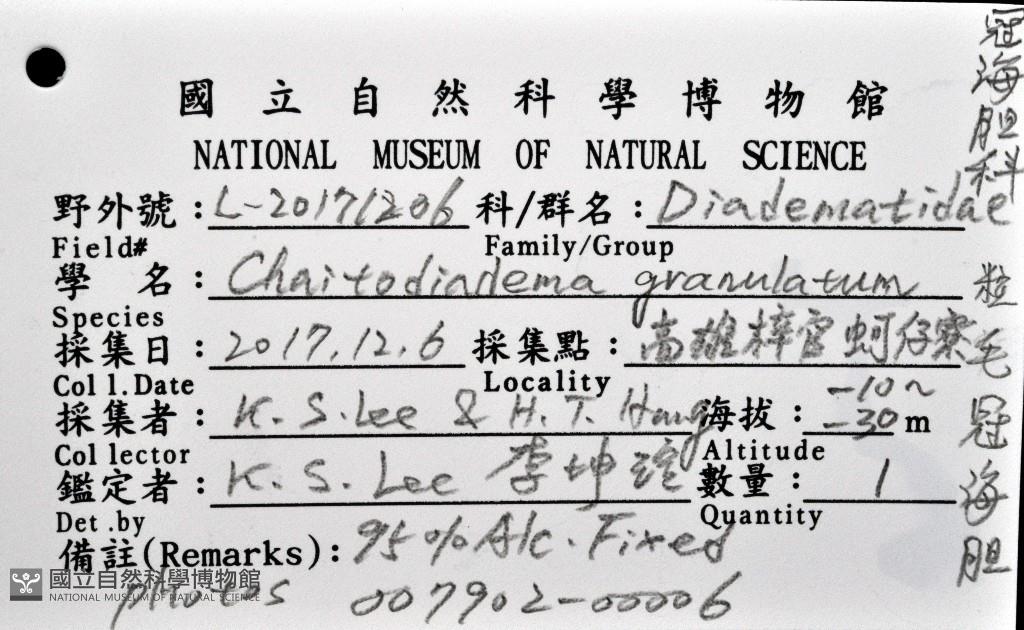 國立自然科學博物館
NATIONAL MUSEUM OF NATURAL SCIENCE
野外號：L-20171206 科/群名：Diadematidae
Field# Family/Group
學名：Chaitodiadema granulatum
Species
採集日：2017.12.6 採集點：高雄梓官蚵仔寮
Coll.Date Locality
採集者：K. S. Lee & H. T. Hung 海拔：-10~-30 m
Collector Altitude
鑑定者：K. S. Lee 李坤瑄 數量：1
Det.by Quantity
備註(Remarks)：95% Alc. Fixed
photos 007902-00006
冠海胆科
粒毛冠海胆
國立自然科學博物館
NATIONAL MUSEUM OF NATURAL SCIENCE